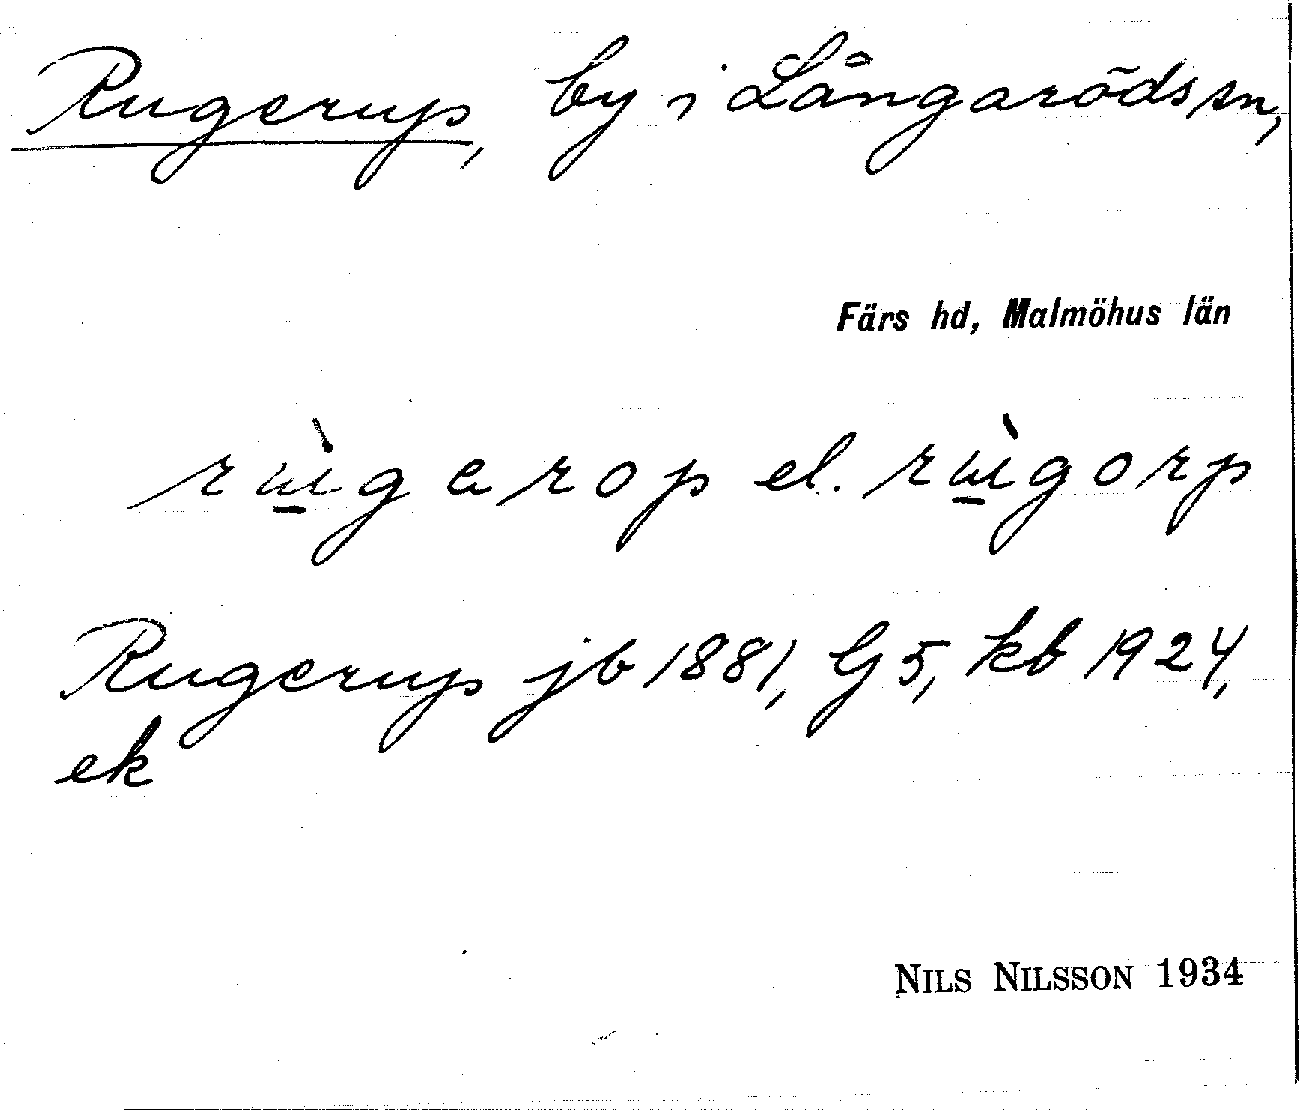 Rugerup, by i Långaröds sn,
Färs hd, Malmöhus län
rɯ̱̀garop el. rɯ̱̀gorp
Rugerup jb 1881, G5, kb 1924,
ek
NILS NILSSON 1934